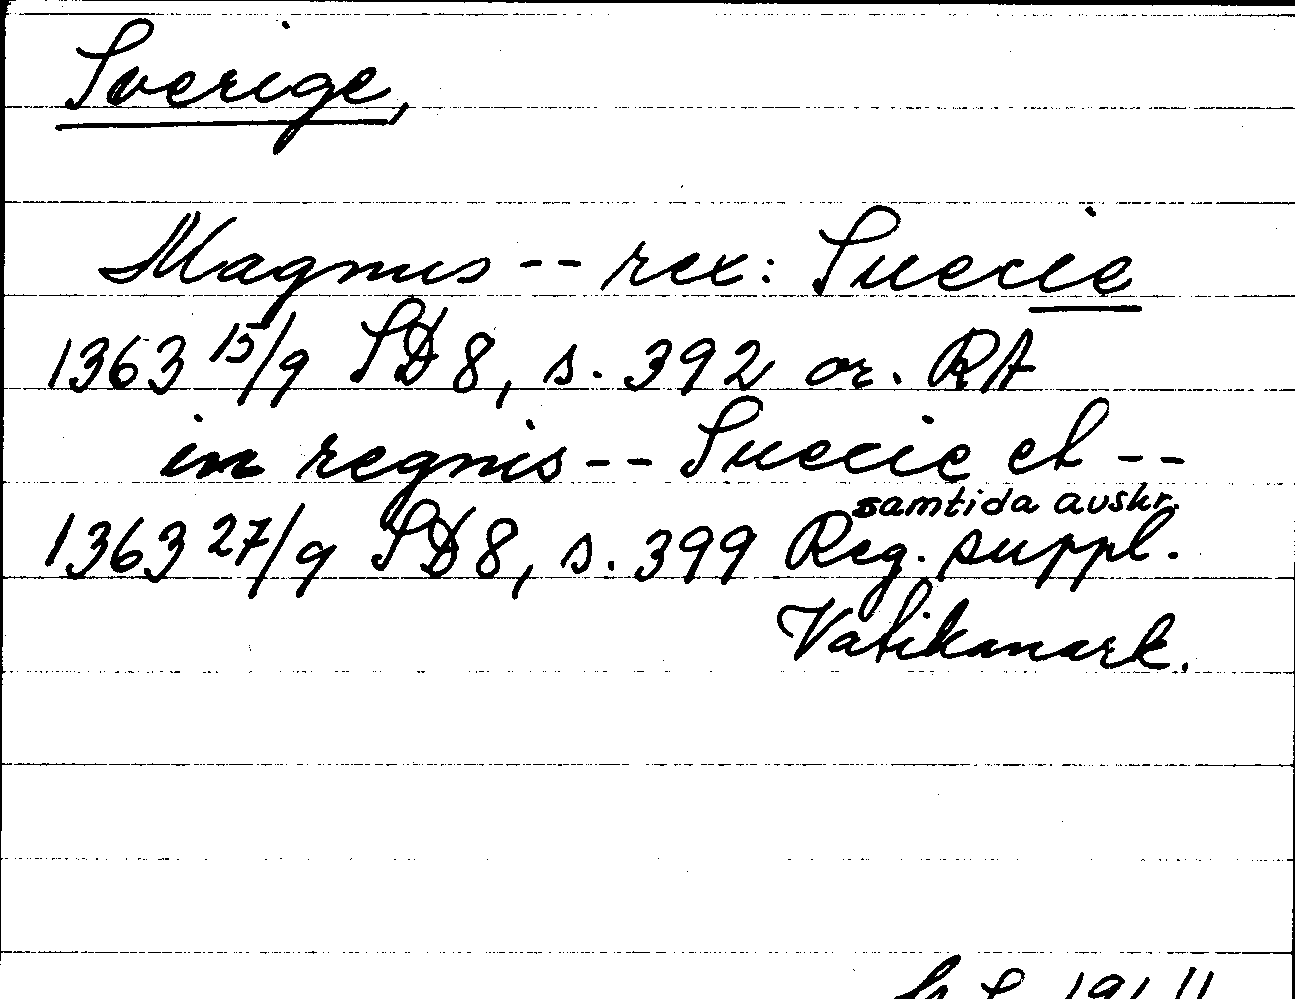 Sverige,
Magnus -- rex: Suecie
1363 15/9 SD 8, s. 392 or. RA
in regnis -- Suecie et --
samtida avskr.
1363 27/9 SD 8, s. 399 Reg. suppl.
Vatikanark.